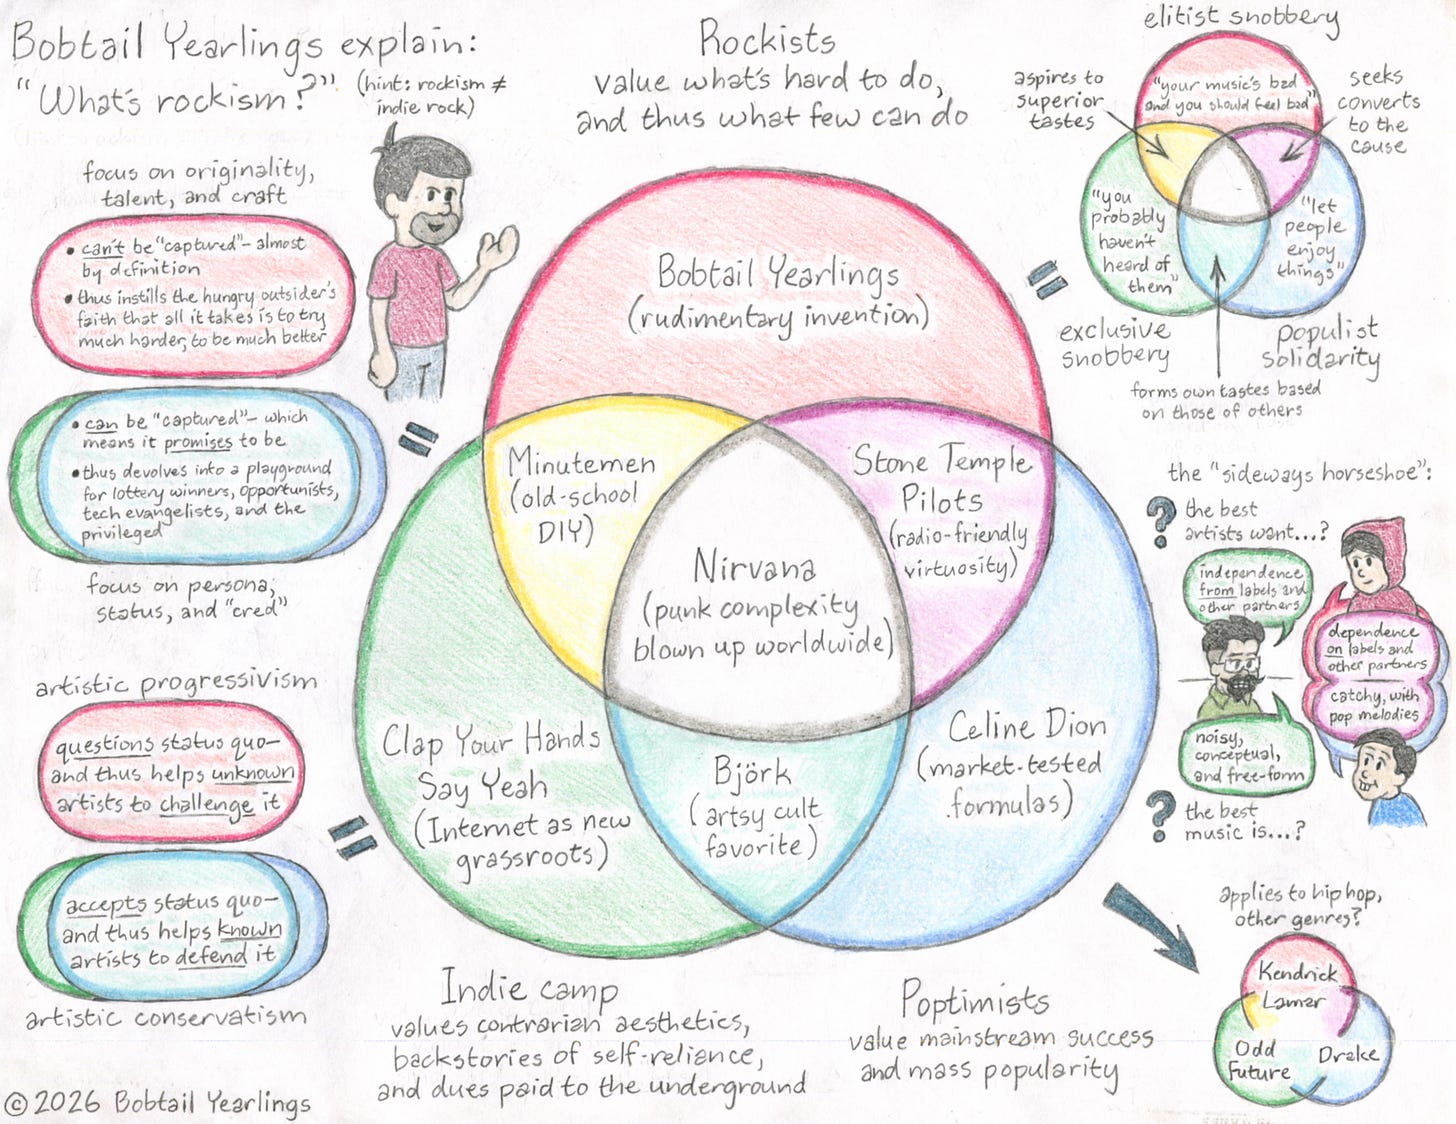 Bobtail Yearlings explain:
"What's rockism?"
(hint: rockism ≠
indie rock)
Rockists
value what's hard to do,
and thus what few can do
elitist snobbery
aspires to
superior
tastes
"your music's bad
and you should feel bad"
seeks
converts
to the
cause
"you
probably
haven't
heard of
them"
"let
people
enjoy
things"
exclusive
snobbery
populist
solidarity
forms own tastes based
on those of others
focus on originality,
talent, and craft
• can't be "captured" – almost
by definition
• thus instills the hungry outsider's
faith that all it takes is to try
much harder, to be much better
• can be "captured" – which
means it promises to be
• thus devolves into a playground
for lottery winners, opportunists,
tech evangelists, and the
privileged
focus on persona,
status, and "cred"
artistic progressivism
questions status quo –
and thus helps unknown
artists to challenge it
accepts status quo –
and thus helps known
artists to defend it
artistic conservatism
Bobtail Yearlings
(rudimentary invention)
Minutemen
(old-school
DIY)
Stone Temple
Pilots
(radio-friendly
virtuosity)
Nirvana
(punk complexity
blown up worldwide)
Clap Your Hands
Say Yeah
(Internet as new
grassroots)
Björk
(artsy cult
favorite)
Celine Dion
(market-tested
formulas)
Indie camp
values contrarian aesthetics,
backstories of self-reliance,
and dues paid to the underground
Poptimists
value mainstream success
and mass popularity
the "sideways horseshoe":
? the best
artists want...?
independence
from labels and
other partners
dependence
on labels and
other partners
catchy, with
pop melodies
noisy,
conceptual,
and free-form
? the best
music is...?
applies to hip hop,
other genres?
Kendrick
Lamar
Odd
Future
Drake
© 2026 Bobtail Yearlings